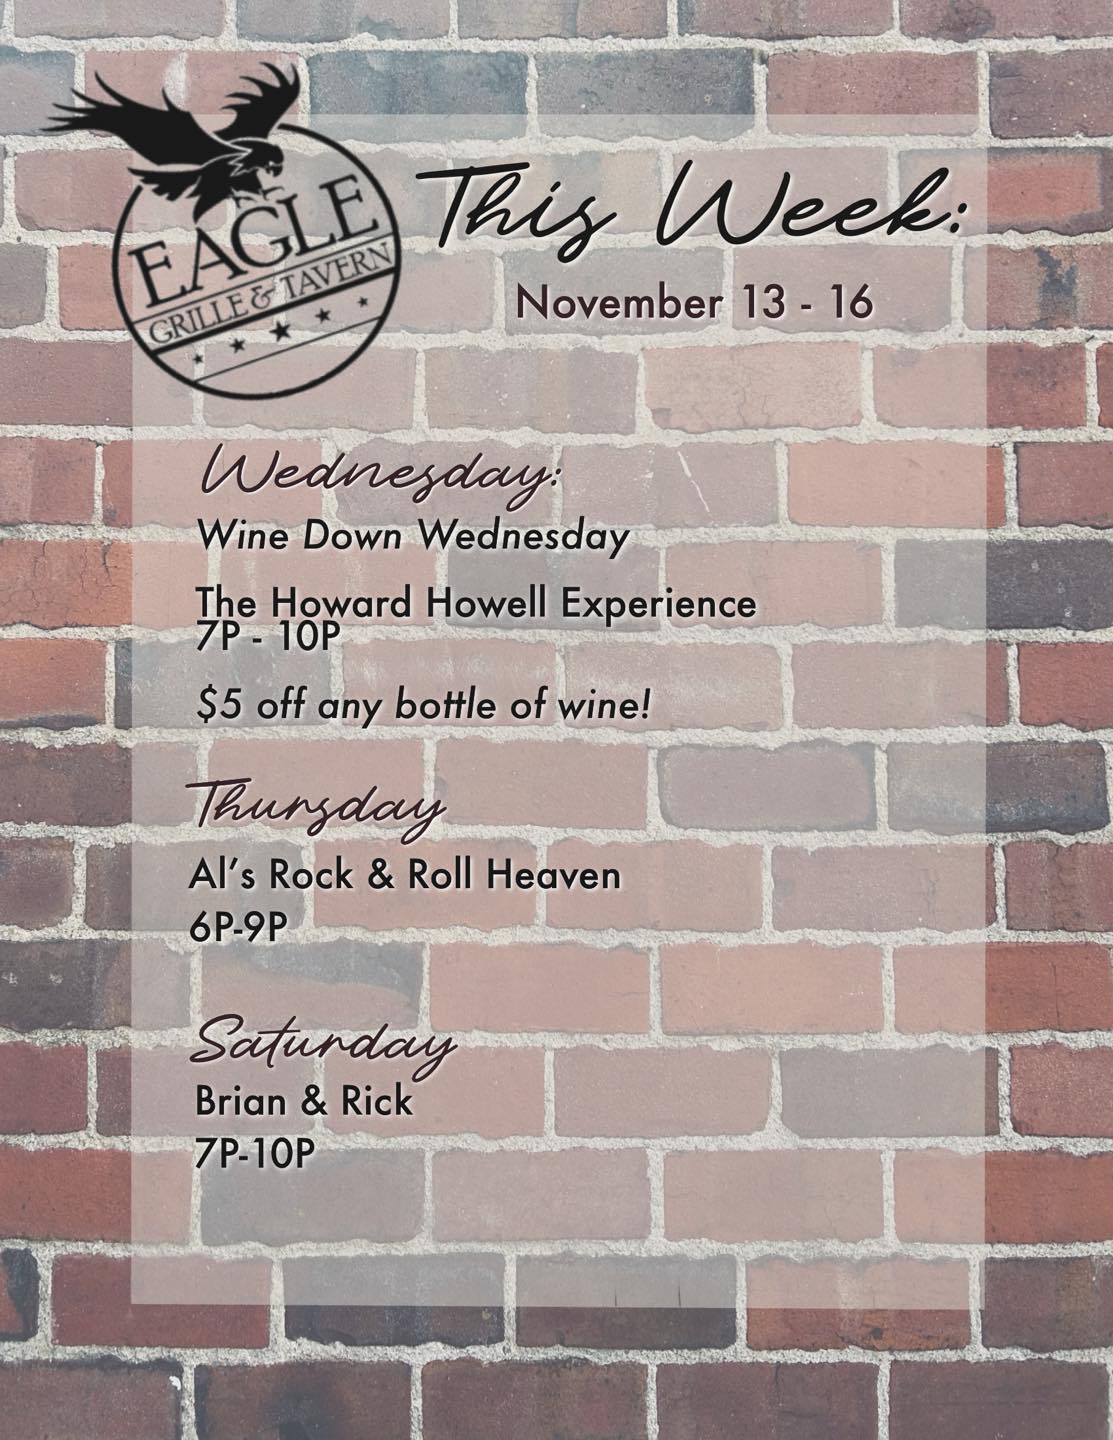 EAGLE
GRILLE & TAVERN
This Week:
November 13 - 16
Wednesday:
Wine Down Wednesday
The Howard Howell Experience
7P - 10P
$5 off any bottle of wine!
Thursday
Al’s Rock & Roll Heaven
6P-9P
Saturday
Brian & Rick
7P-10P